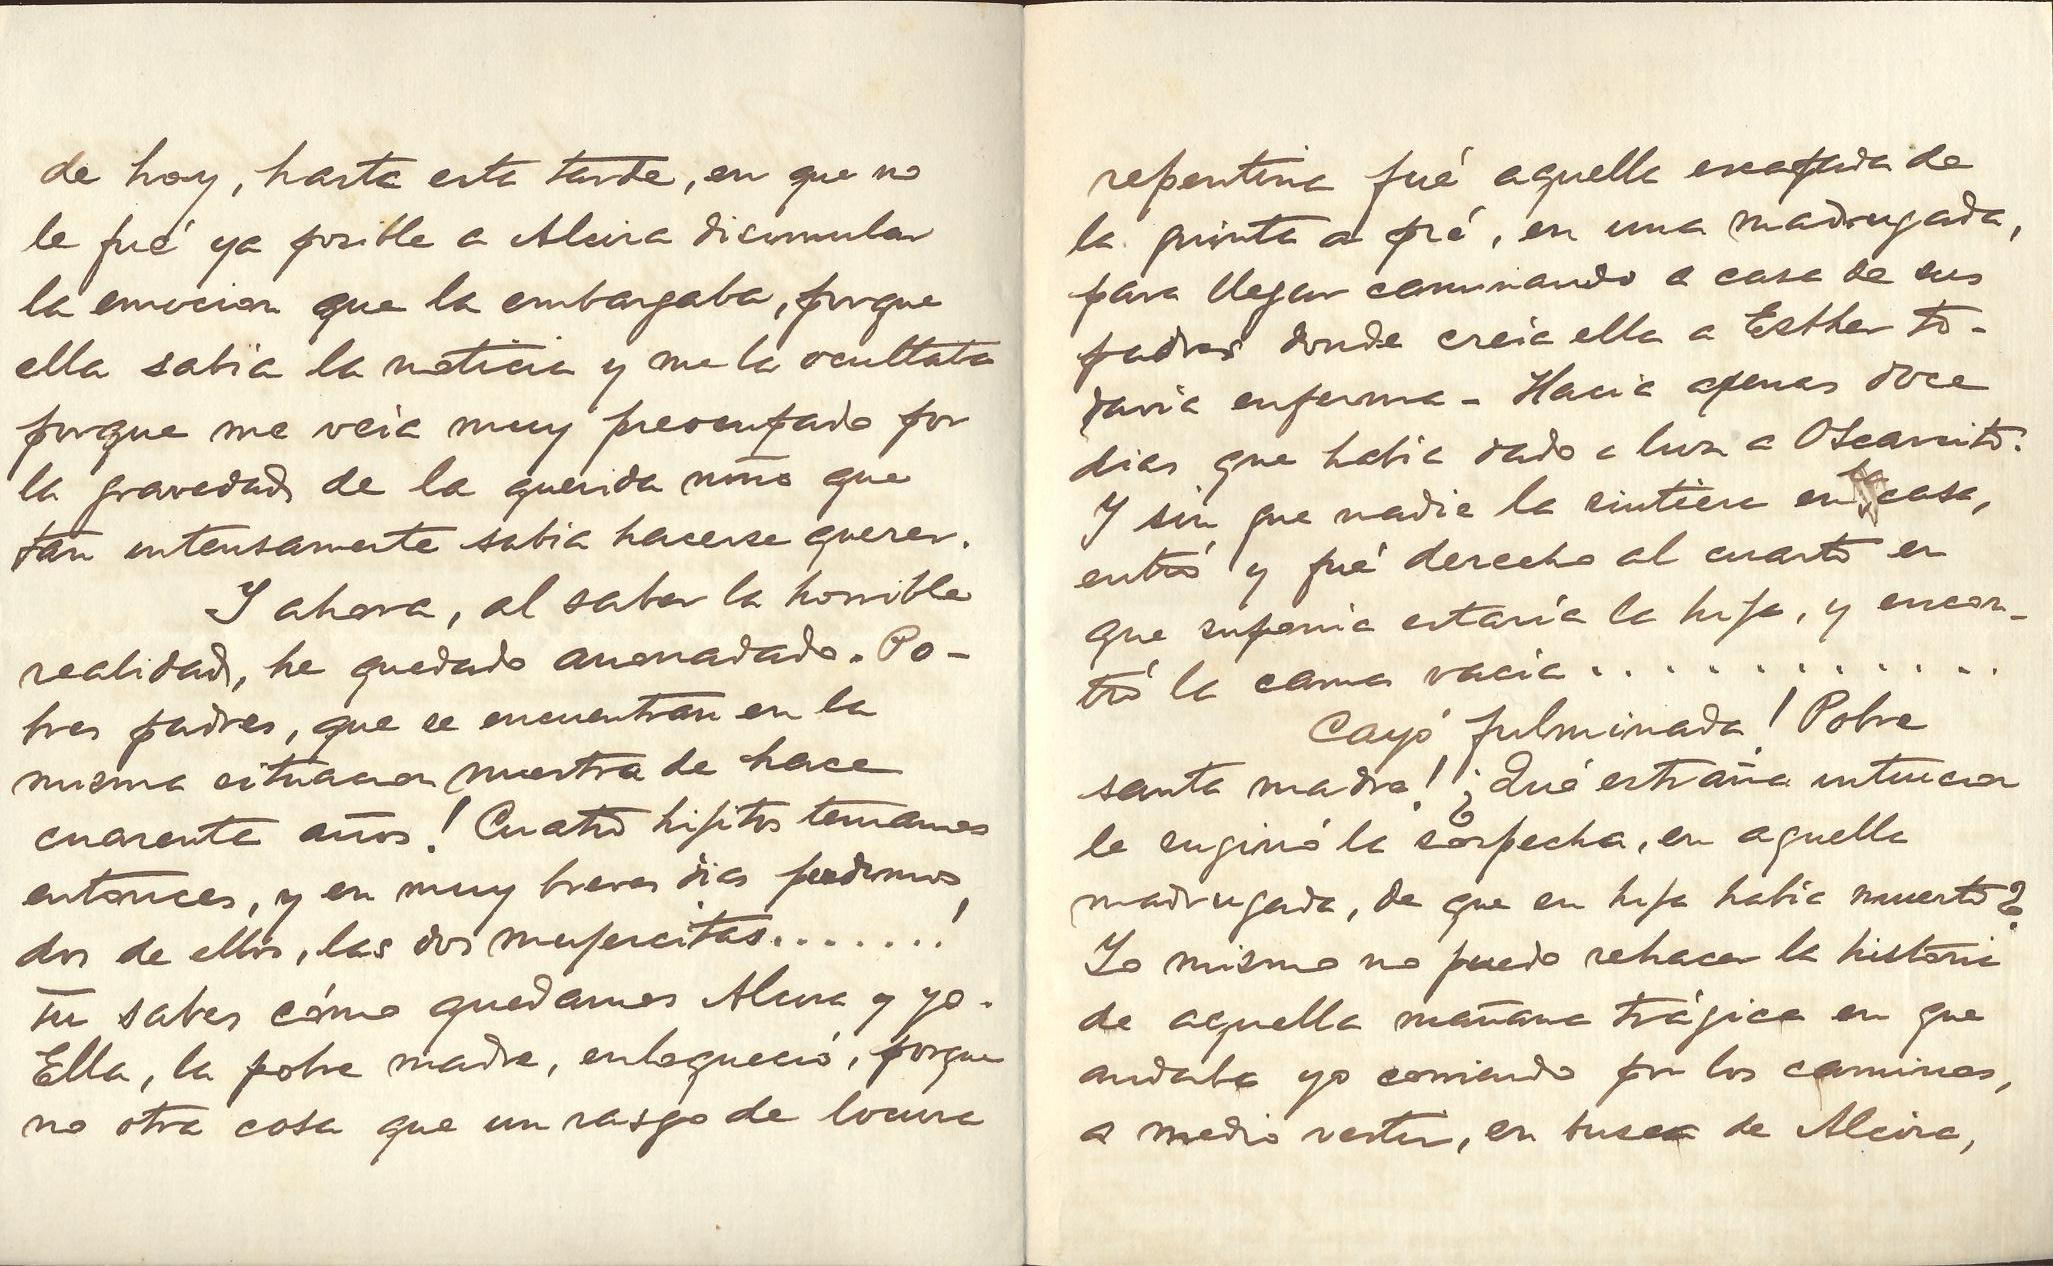 de hoy, hasta esta tarde, en que no
le fué ya posible a Alcira disimular
la emocion que la embargaba, porque
ella sabia la noticia y me la ocultaba
porque me veia muy preocupado por
la gravedad de la querida niña que
tan intensamente sabia hacerse querer.
Y ahora, al saber la horrible
realidad, he quedado anonadado. Po-
bres padres, que se encuentran en la
misma situacion nuestra de hace
cuarenta años! Cuatro hijitos teniamos
entonces, y en muy breves dias perdimos,
dos de ellos, las dos mujercitas.......!
Tu sabes cómo quedamos Alcira y yo.
Ella, la pobre madre, enloqueció, porque
no otra cosa que un rasgo de locura
repentina fué aquella escapada de
la quinta a pié, en una madrugada,
para llegar caminando a casa de sus
padres donde creia ella a Esther to-
davia enferma - Hacia apenas doce
dias que habia dado a luz a Oscarcito.
Y sin que nadie la sintiera en la casa,
entró y fué derecho al cuarto en
que suponia estaria la hija, y encon-
tró la cama vacia.............
Cayó fulminada! Pobre
santa madre! ¿Qué estraña intuicion
le sugirió la sospecha, en aquella
madrugada, de que su hija habia muerto?
Yo mismo no puedo rehacer la historia
de aquella mañana trágica en que
andaba yo corriendo por los caminos,
a medio vestir, en busca de Alcira,